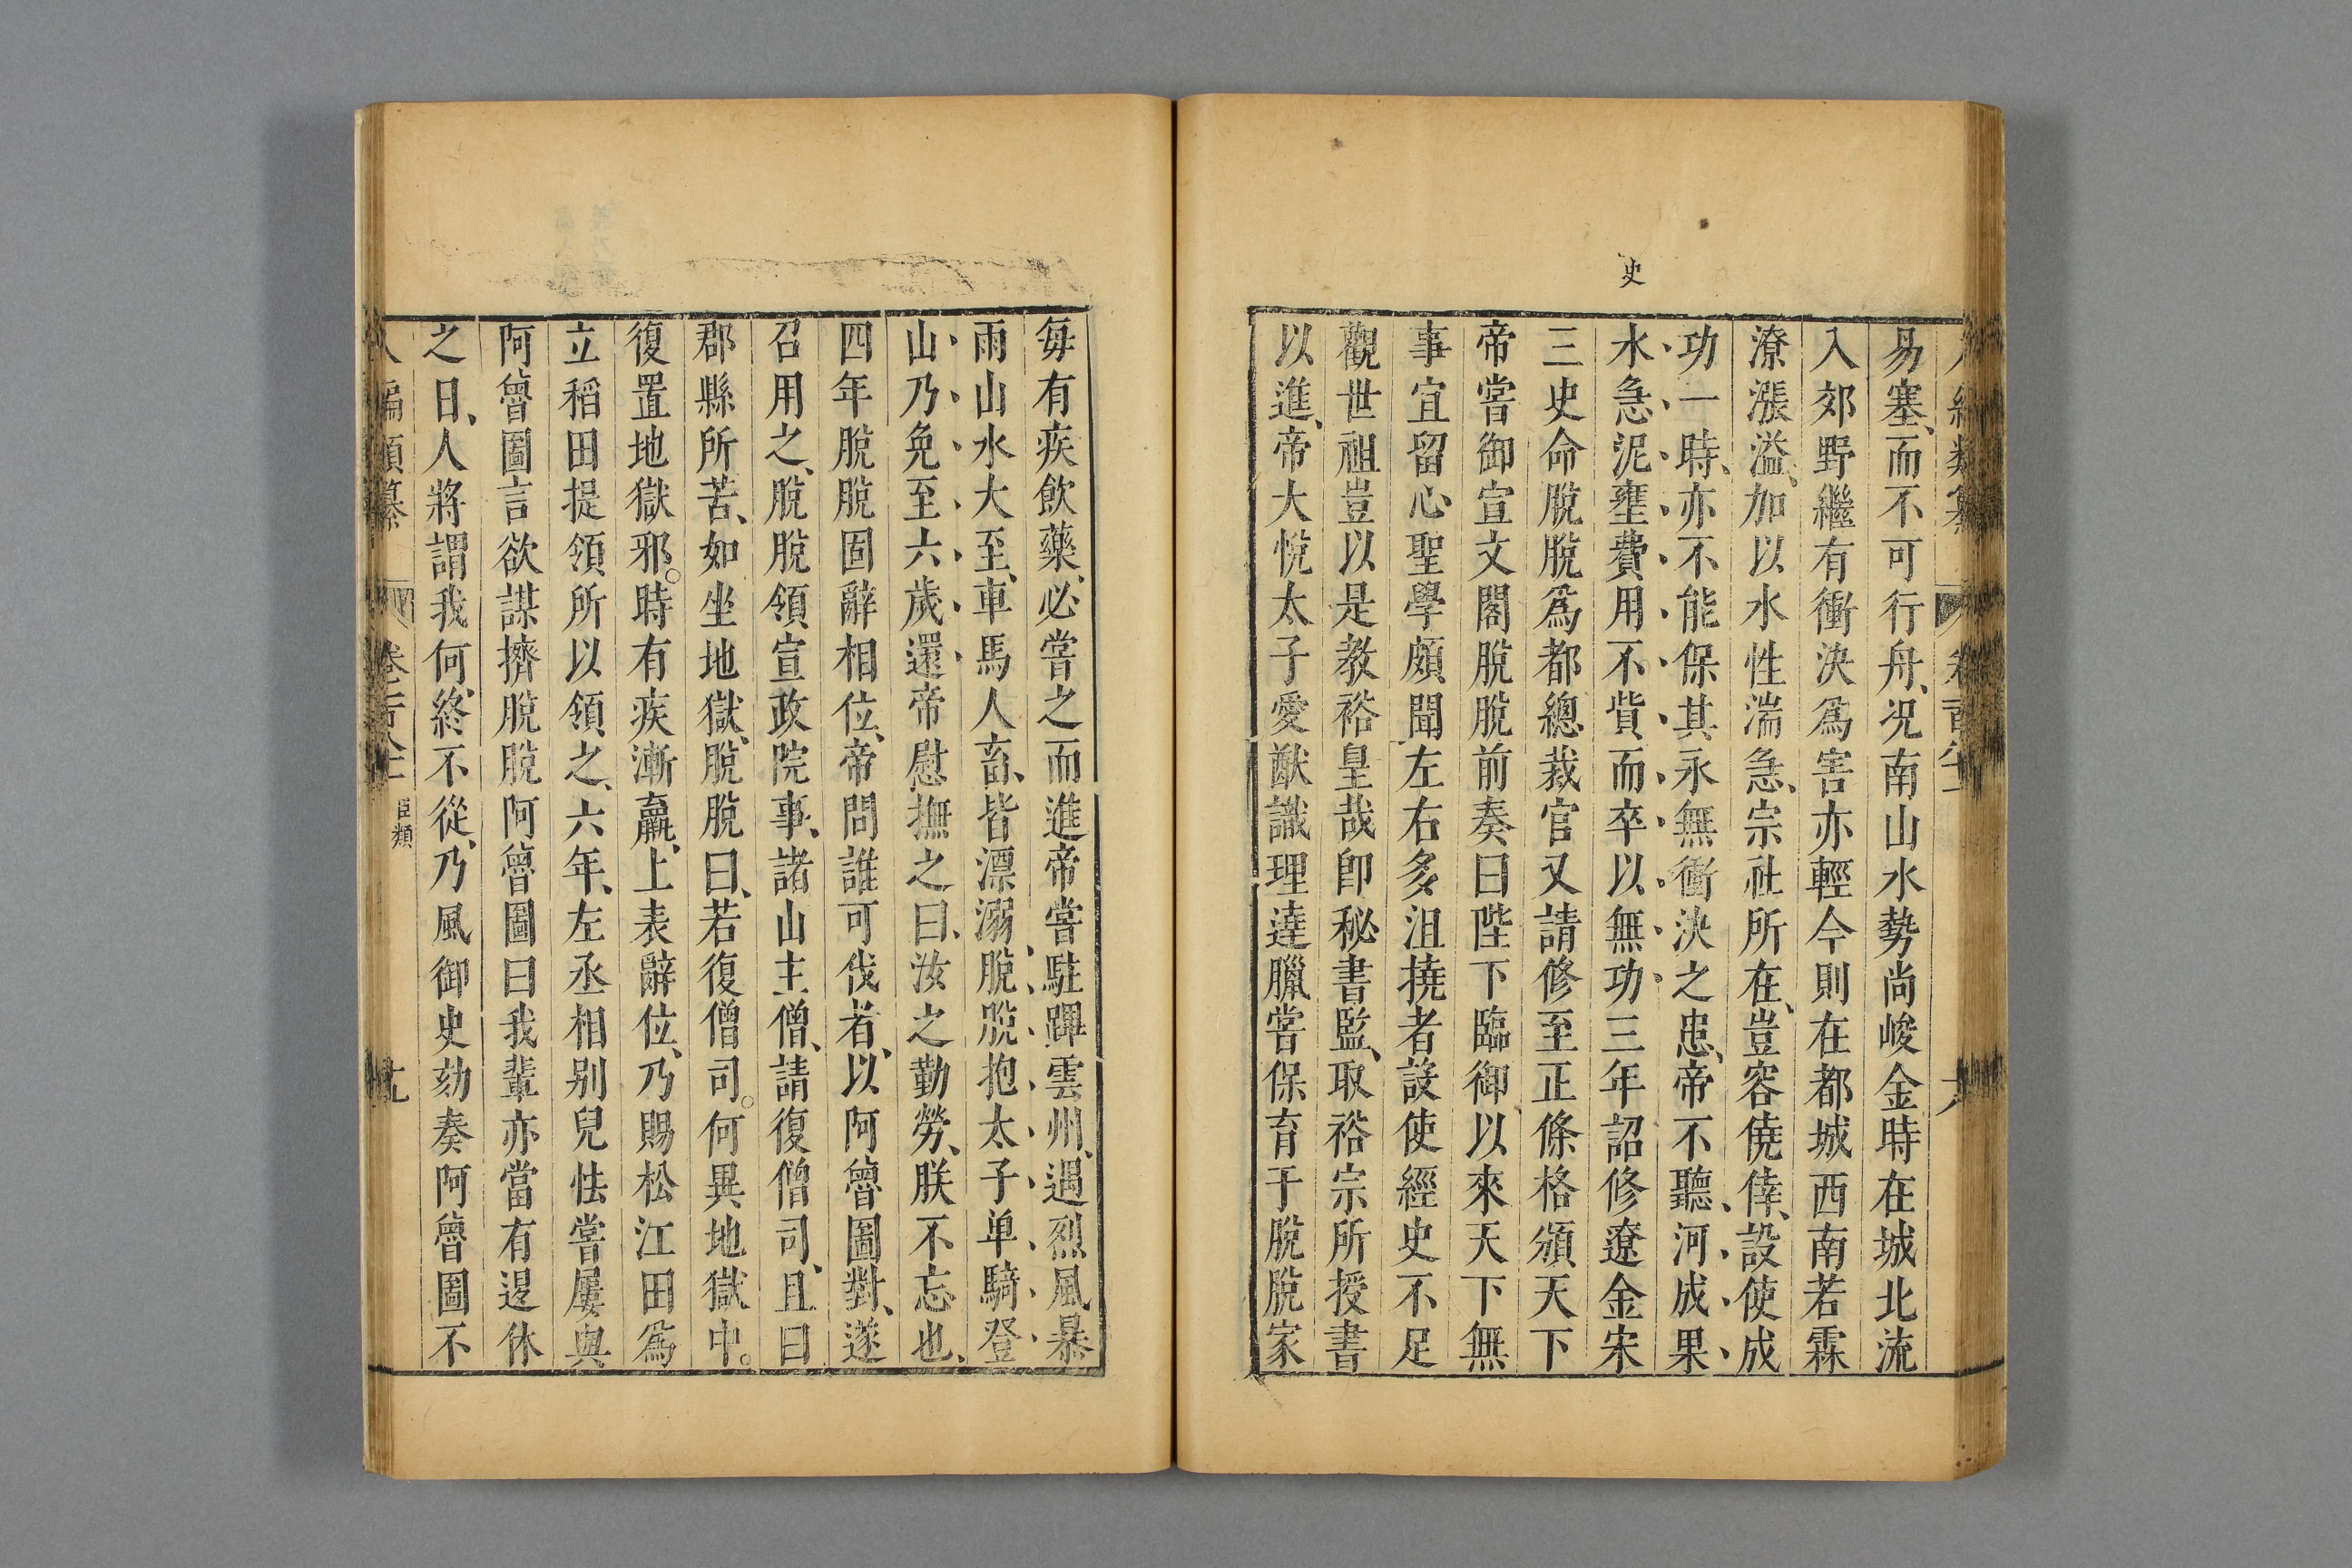 史
易塞、而不可行舟、况南山水勢尚峻金時在城北流
入郊野繼有衝決爲害亦輕今則在都城西南若霖
潦漲溢、加以水性湍急、宗社所在、豈容僥倖、設使成
功一時、亦不能保其永無衝決之患、帝不聽、河成果
水急泥壅費用不貲而卒以無功三年詔修遼金宋
三史命脫脫爲都總裁官又請修至正條格頒天下
帝嘗御宣文閣脫脫前奏曰陛下臨御以來天下無
事宜留心聖學頗聞左右多沮撓者設使經史不足
觀世祖豈以是教裕皇哉卽秘書監、取裕宗所授書
以進、帝大悅太子愛猷識理達臘嘗保育于脫脫家
每有疾飲藥、必嘗之而進帝嘗駐蹕雲州、遇烈風暴
雨山水大至、車馬人畜、皆漂溺、脫脫抱太子单騎登
山乃免至六歲還帝慰撫之曰、汝之勤勞、朕不忘也、
四年脫脫固辭相位、帝問誰可伐者、以阿魯圖對、遂
召用之、脫脫領宣政院事、諸山主僧、請復僧司、且曰
郡縣所苦、如坐地獄、脫脫曰、若復僧司。何異地獄中。
復置地獄邪。時有疾漸羸、上表辭位、乃賜松江田爲
立稻田提領所以領之、六年、左丞相别兒怯嘗屢與
阿魯圖言欲謀擠脫脫阿魯圖曰我輩亦當有退休
之日、人將謂我何、終不從、乃風御史劾奏阿魯圖不
臣類